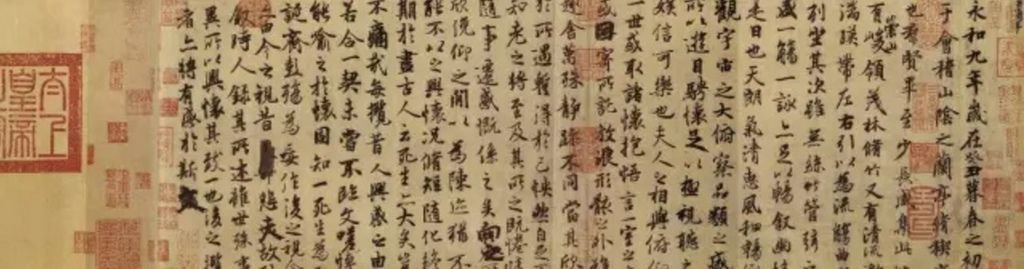 永和九年歲在癸丑暮春之初
于會稽山陰之蘭亭脩稧
也群賢畢至少長咸集此
有崇山峻領茂林脩竹又有清流
湍暎帶左右引以為流觴曲
列坐其次雖無絲竹管絃
盛一觴一詠亦足以暢敘幽
是日也天朗氣清惠風和暢
觀宇宙之大俯察品類之盛
所以遊目騁懷足以極視聽
娛信可樂也夫人之相與俯仰
一世或取諸懷抱悟言一室之
或因寄所託放浪形骸之外雖
趣舍萬殊靜躁不同當其欣
於所遇暫得於己怏然自足
知老之將至及其所之既惓情
隨事遷感慨係之矣向之
欣俛仰之閒以為陳迹猶不
能不以之興懷況脩短隨化終
期於盡古人云死生亦大矣豈
不痛哉每攬昔人興感之由
若合一契未嘗不臨文嗟悼
能喻之於懷固知一死生為
誕齊彭殤為妄作後之視今
由今之視昔悲夫故
敘時人錄其所述雖世殊事
異所以興懷其致一也後之攬
者亦將有感於斯文
太上皇帝